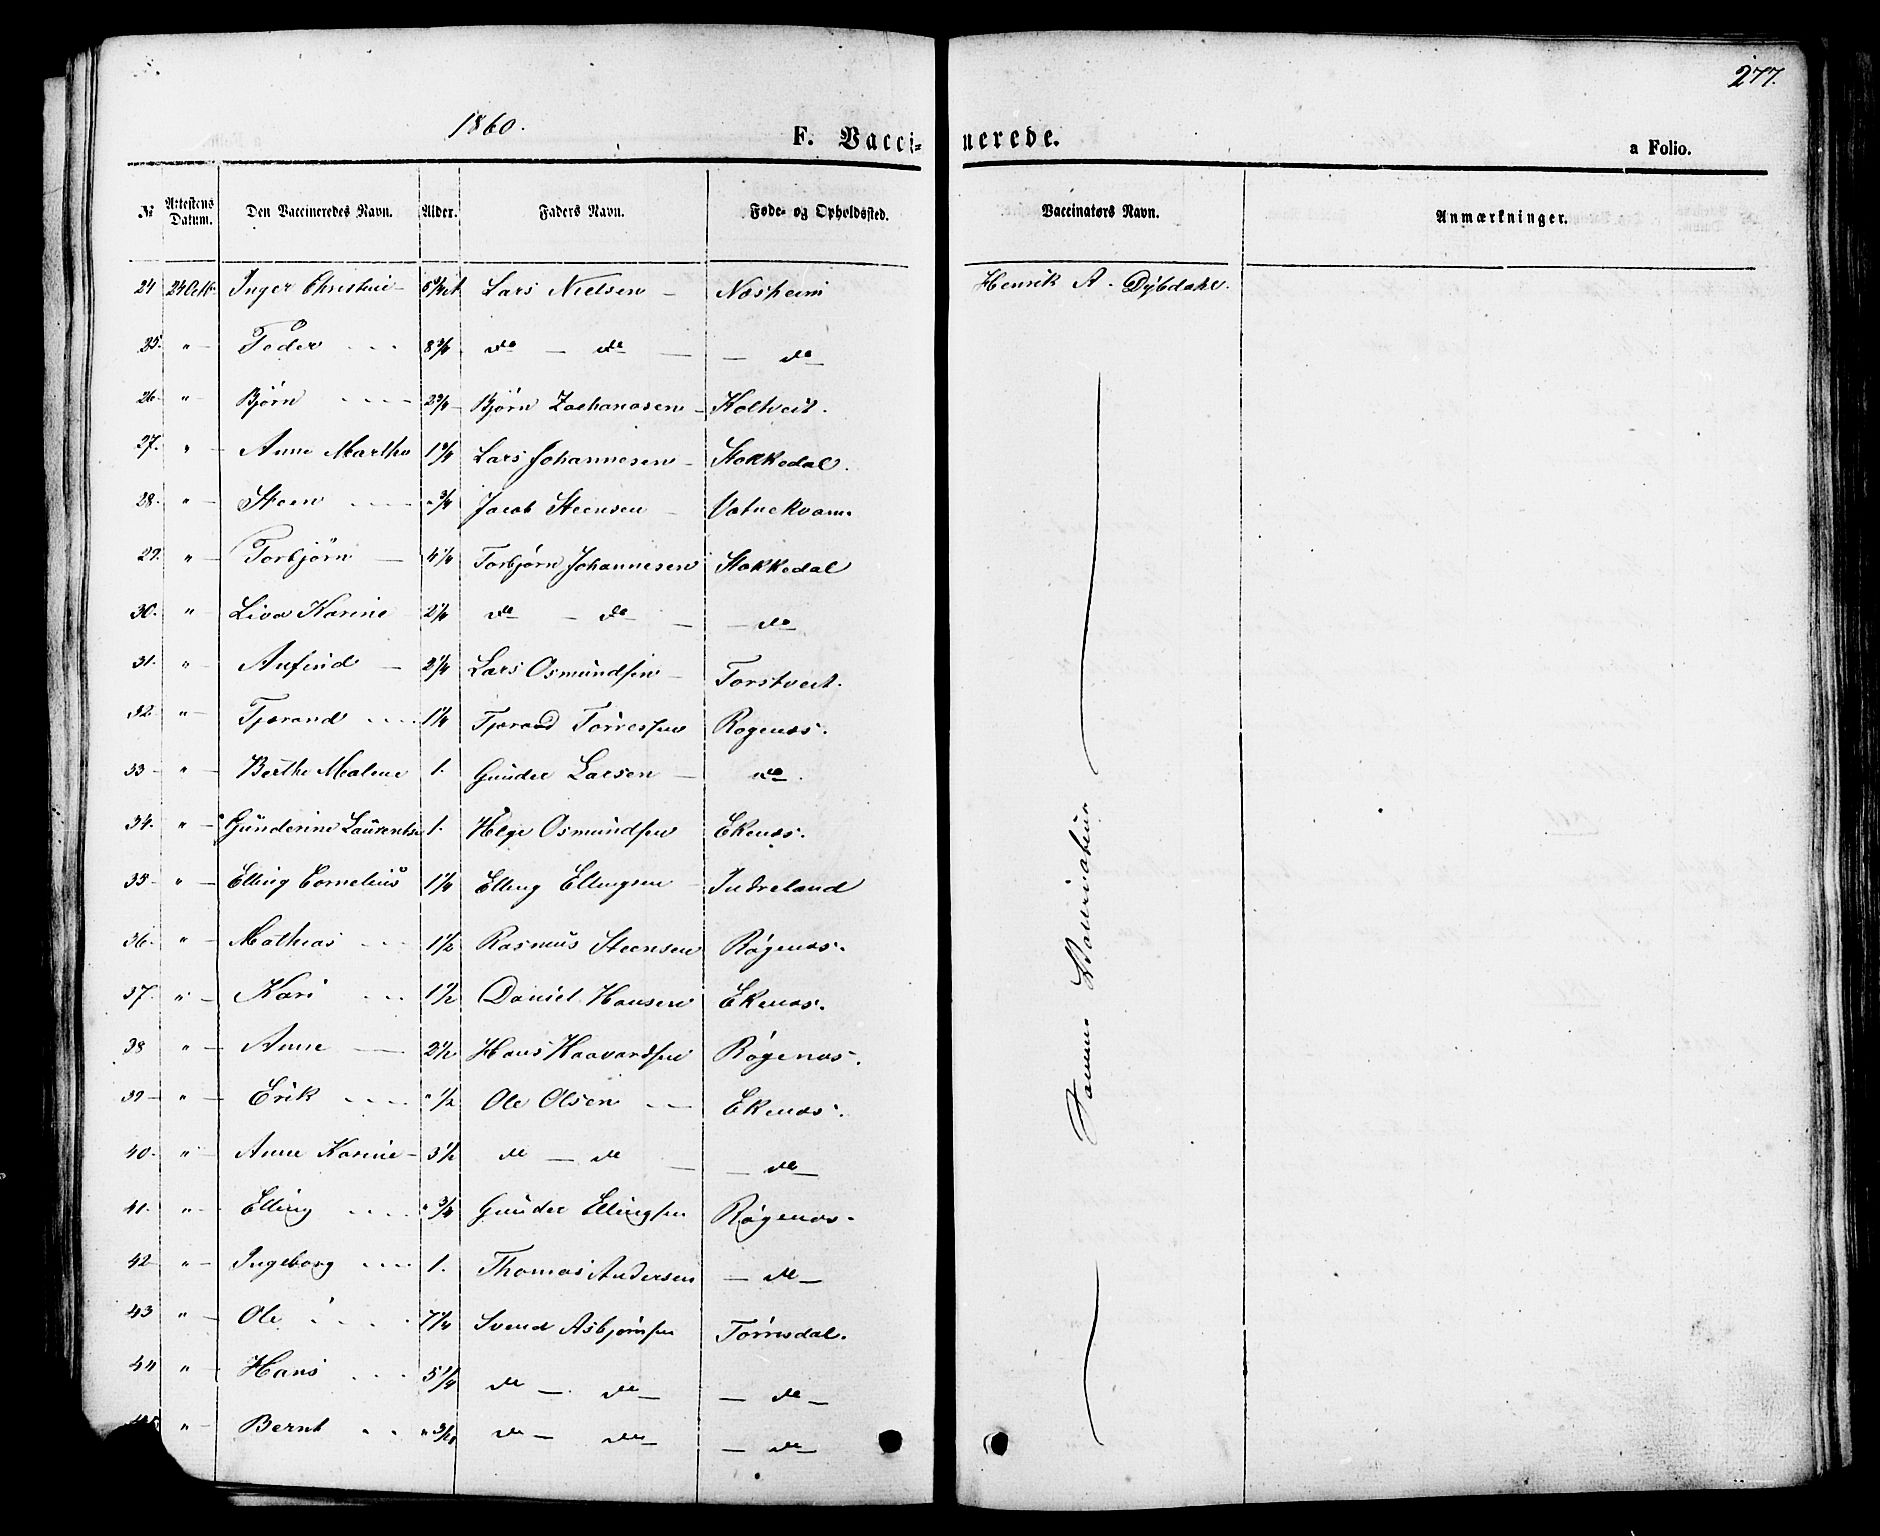 277.
1860.
F. Vaccinerede.
a Folio.
№ Attestens Datum. Den Vaccineredes Navn. Alder. Faders Navn. Føde- og Opholdssted. Vaccinators Navn. Anmærkninger.
24 24 Octb. Inger Christine Lars Nielsen Nosheim Henrik A. Dybdahl.
25. " Peder 8 3/4 do do do
26. " Bjørn 2 3/4 Bjørn Zachariasen Holtveit.
27. " Anne Marthe 1 3/4 Lars Johannesen Stokkedal.
28. " Steen " 3/4 Jacob Steensen Vatnekvam.
29. " Torbjörn 4 1/4 Torbjørn Johannesen Stokkedal
30. " Liva Karine 2 1/4 do do do
31. " Anfind 2 1/4 Lars Osmundsen Torstveit.
32. " Tjerand 1 1/4 Tjerand Torresen Rogenæs.
33 " Berthe Malene 1. Gunder Larsen do.
34. " Gunderine Laurentse 1. Helge Osmundsen Ekenæs.
35 " Elling Cornelius 1 1/4 Elling Ellingsen Indreland
36. " Mathias 1 1/2 Rasmus Steensen Røgenæs.
37. " Kari 1 1/2 Daniel Hansen Ekenæs.
38 " Anne 2 1/2 Hans Haavardsen Røgenæs.
39 " Erik " 1/2 Ole Olsen Ekenæs.
40. " Anne Karine 3 1/2 do do do
41. " Elling " 3/4 Gunder Ellingsen Røgenæs.
42 " Ingeborg 1. Thomas Andersen do
43 " Ole 7 1/4 Svend Asbjørnsen Tørresdal.
44 " Hans 5 1/4 do do do
45. " Bernt " do do do
Samme